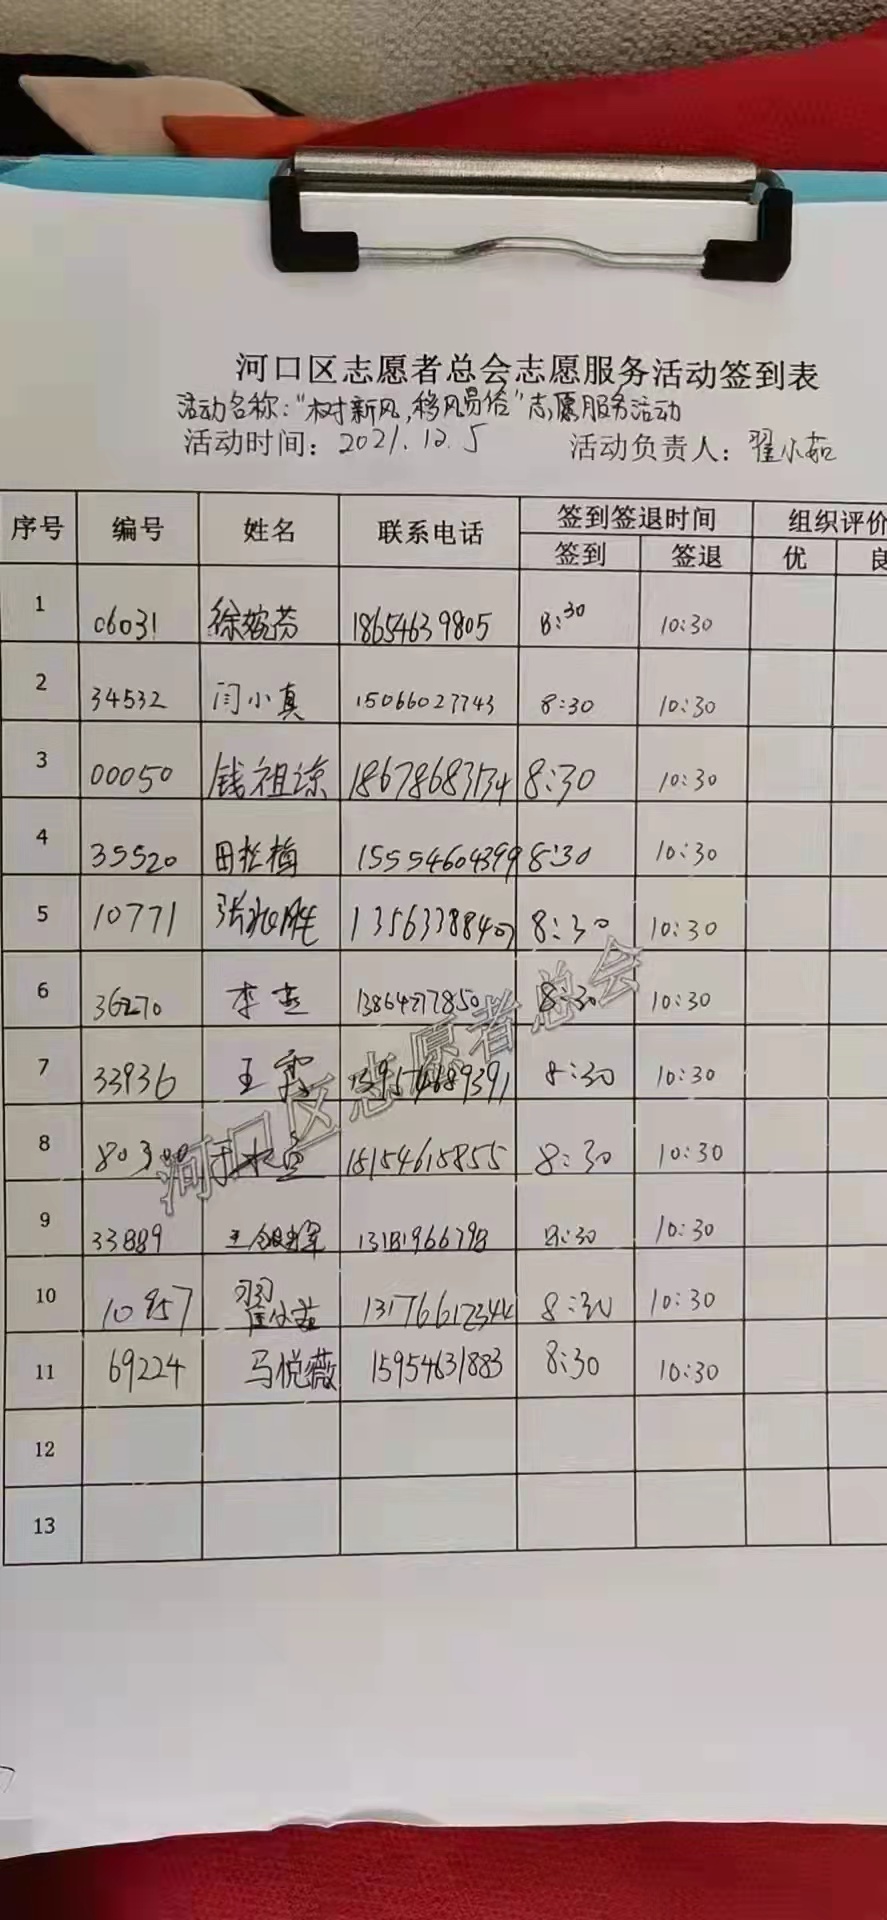 河口区志愿者总会志愿服务活动签到表
活动名称：“树新风，移风易俗”志愿服务活动
活动时间：2021.12.5 活动负责人：翟小茹
序号 编号 姓名 联系电话 签到签退时间 组织评价
签到 签退 优 良
1 06031 徐婉芬 18654639805 8:30 10:30
2 34532 闫小真 15066027743 8:30 10:30
3 00050 钱祖琼 18678683134 8:30 10:30
4 35520 田松梅 15554604399 8:30 10:30
5 10771 8:30 10:30
6 36270 李 13864277850 8:30 10:30
7 33936 王霞 8:30 10:30
8 80300 15154615855 8:30 10:30
9 33889 王 8:30 10:30
10 10957 翟小茹 13176612344 8:30 10:30
11 69224 马悦薇 15954631883 8:30 10:30
12
13
河口区志愿者总会